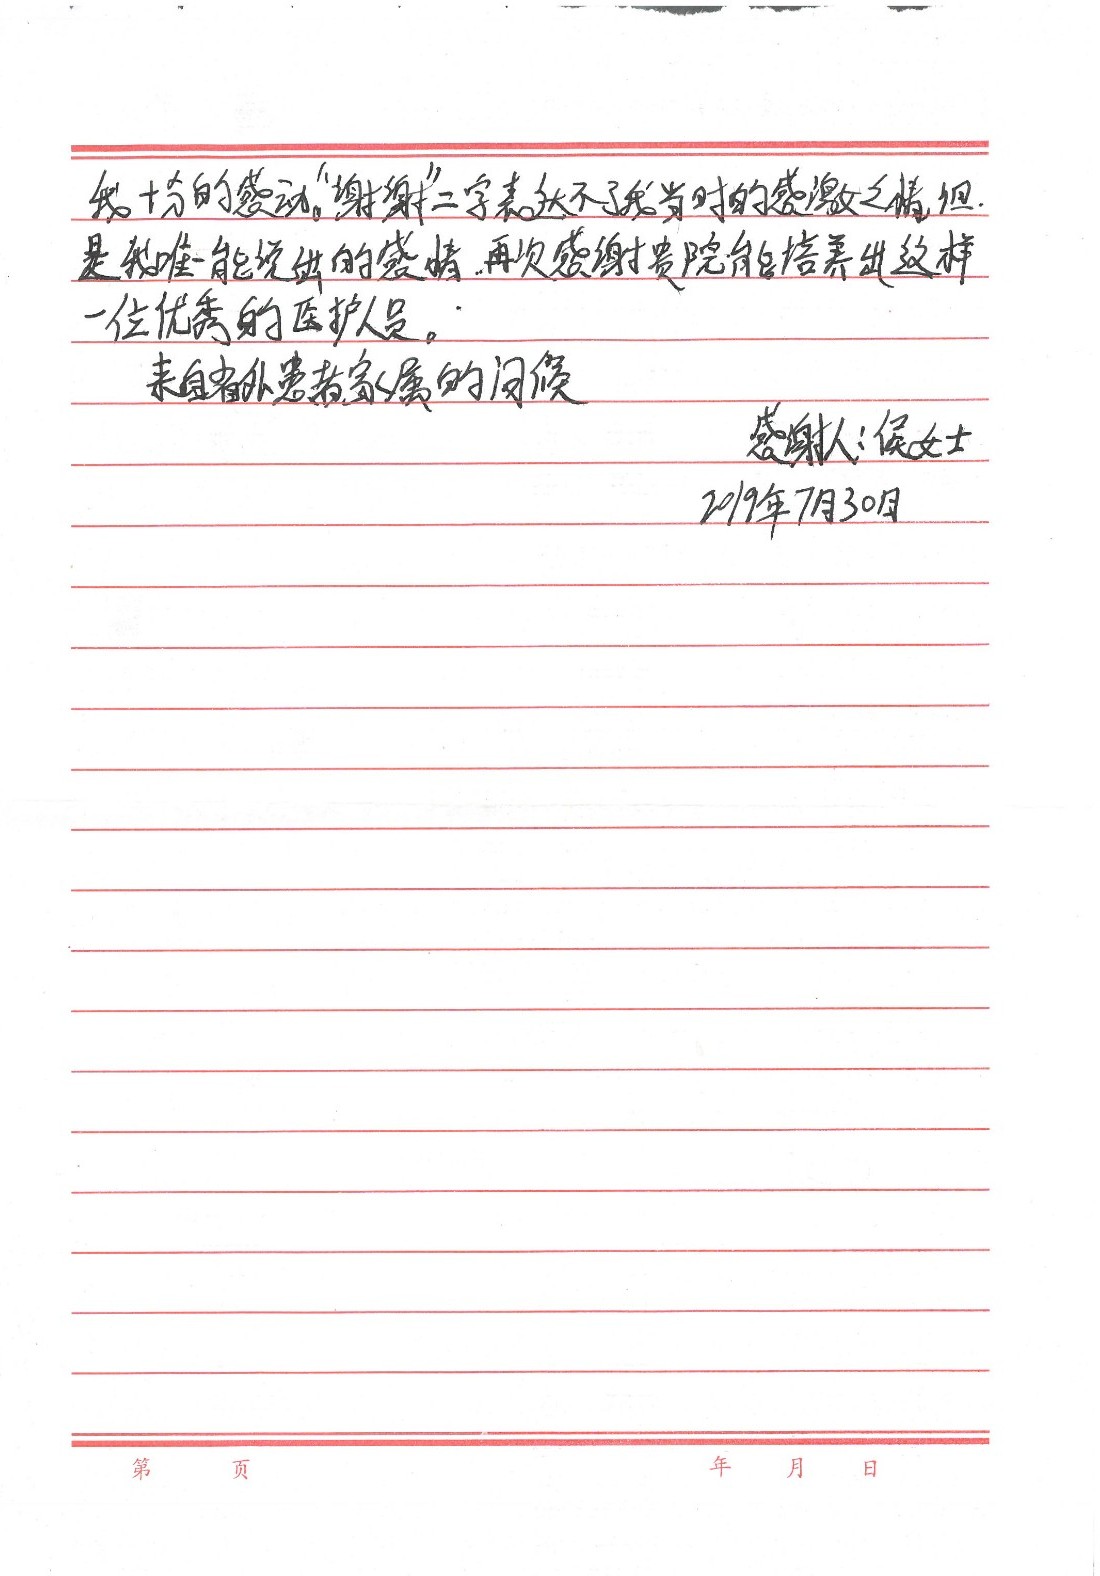 我十分的感动。“谢谢”二字表达不了我当时的感激之情,但
是我唯一能说出的感情,再次感谢贵院能培养出这样
一位优秀的医护人员。
来自省外患者家属的问候
感谢人:侯女士
2019年7月30日
第 页 年 月 日